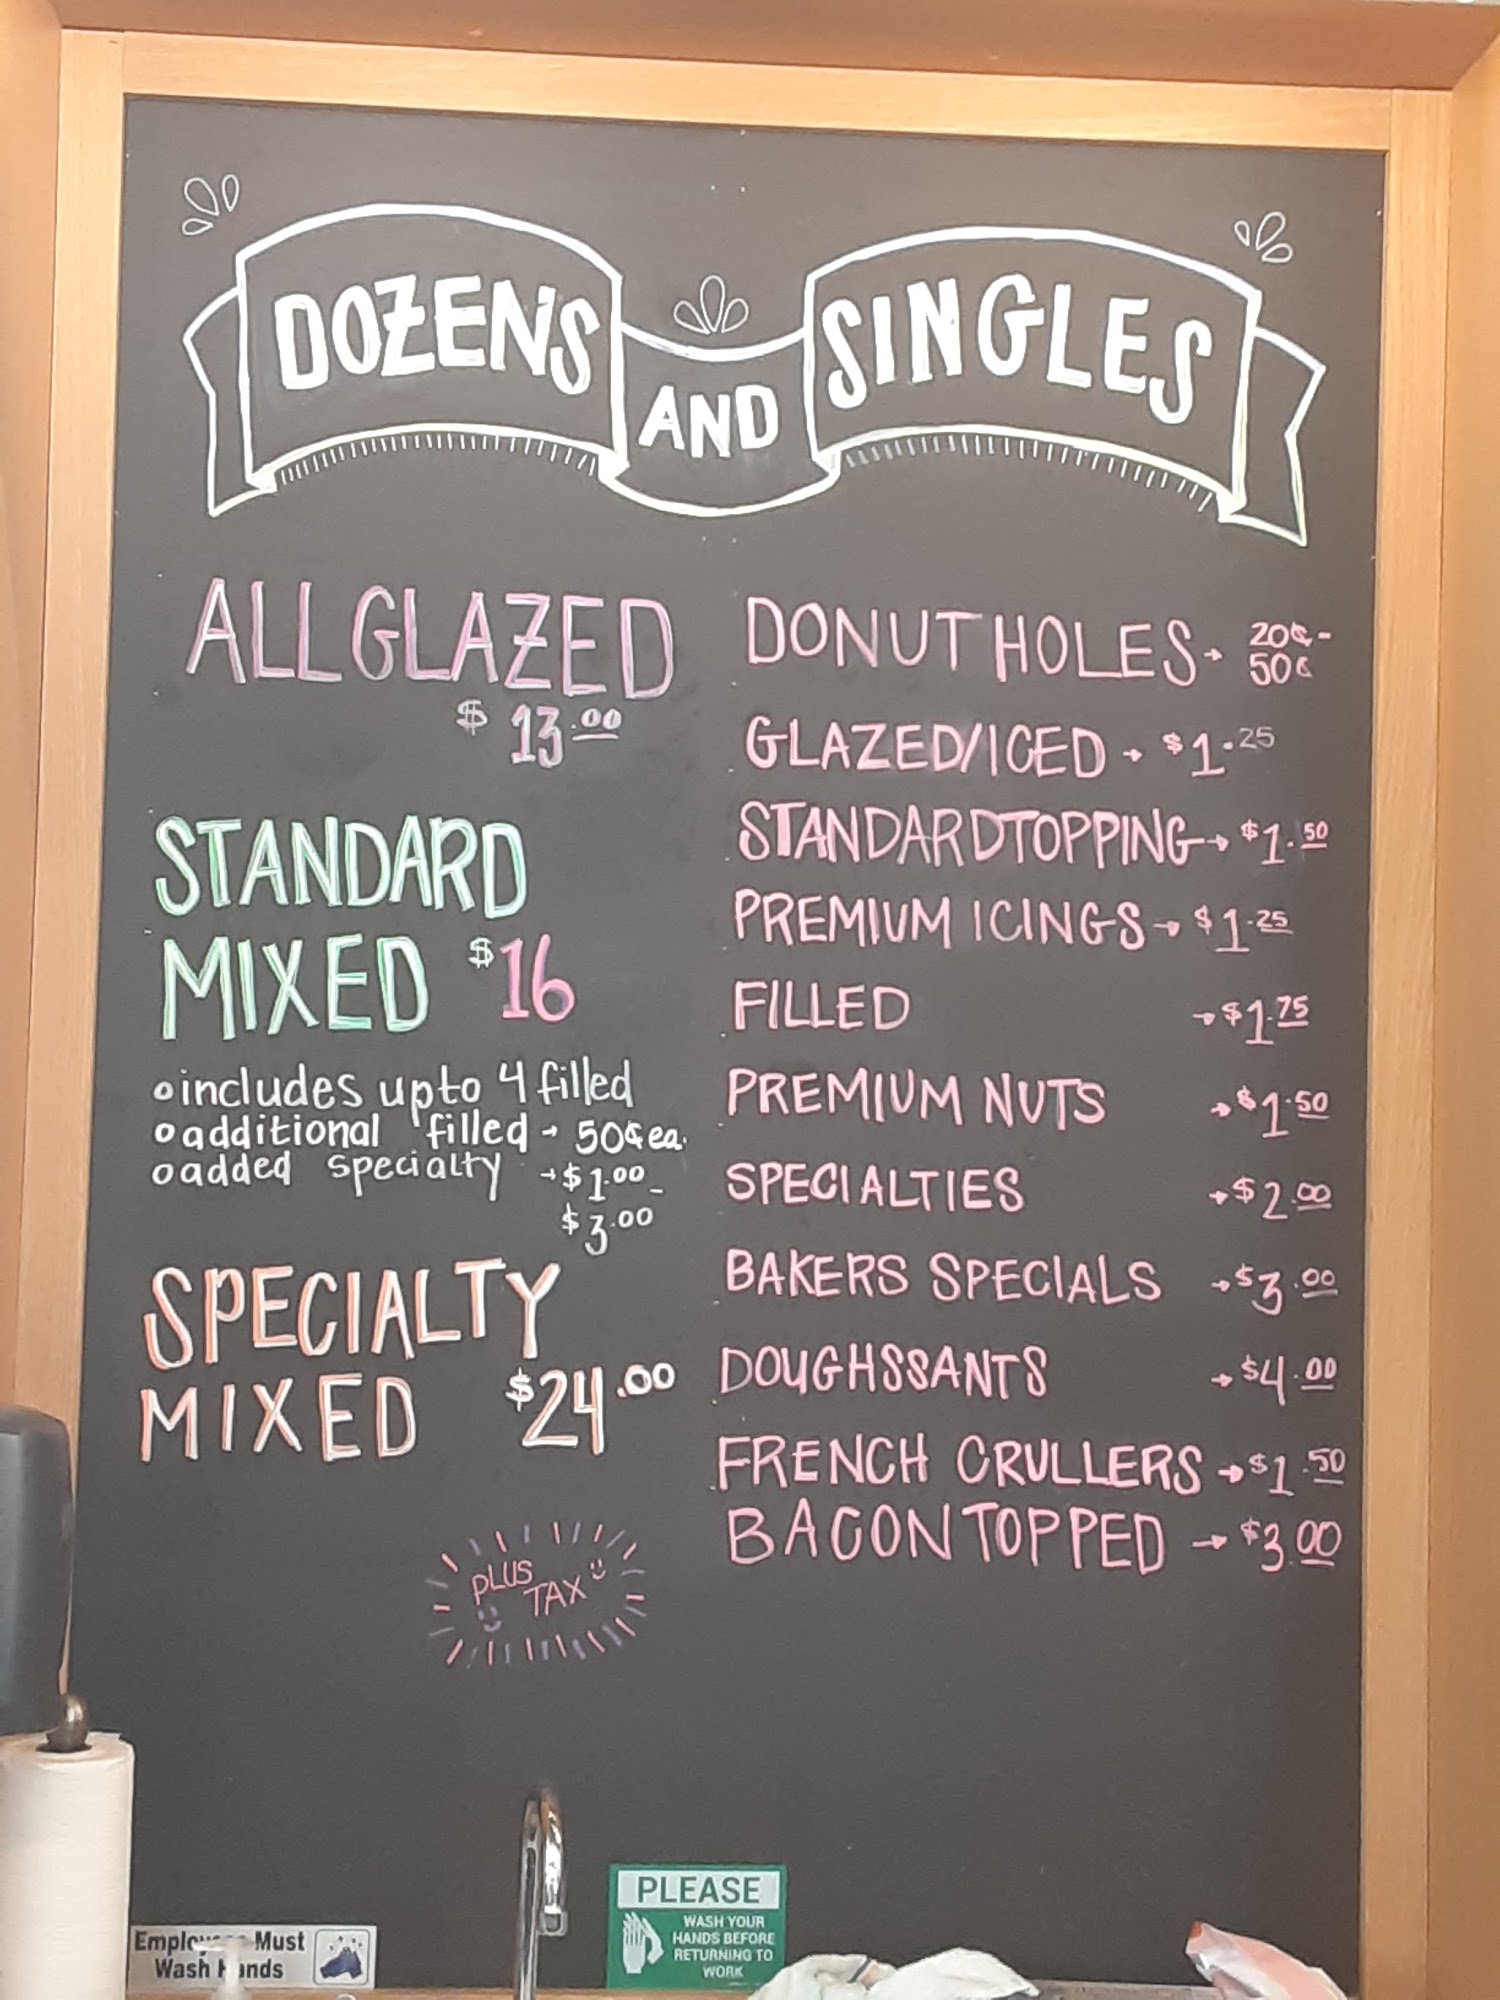 DOZENS AND SINGLES
ALL GLAZED
$ 13.00
STANDARD
MIXED $16
o includes up to 4 filled
o additional filled → 50¢ ea.
o added specialty → $1.00 -
$3.00
SPECIALTY
MIXED $24.00
PLUS
TAX
DONUT HOLES → 20¢ -
50¢
GLAZED/ICED → $1.25
STANDARD TOPPING → $1.50
PREMIUM ICINGS → $1.25
FILLED → $1.75
PREMIUM NUTS → $1.50
SPECIALTIES → $2.00
BAKERS SPECIALS → $3.00
DOUGHSSANTS → $4.00
FRENCH CRULLERS → $1.50
BACON TOPPED → $3.00
Employees Must
Wash Hands
PLEASE
WASH YOUR
HANDS BEFORE
RETURNING TO
WORK